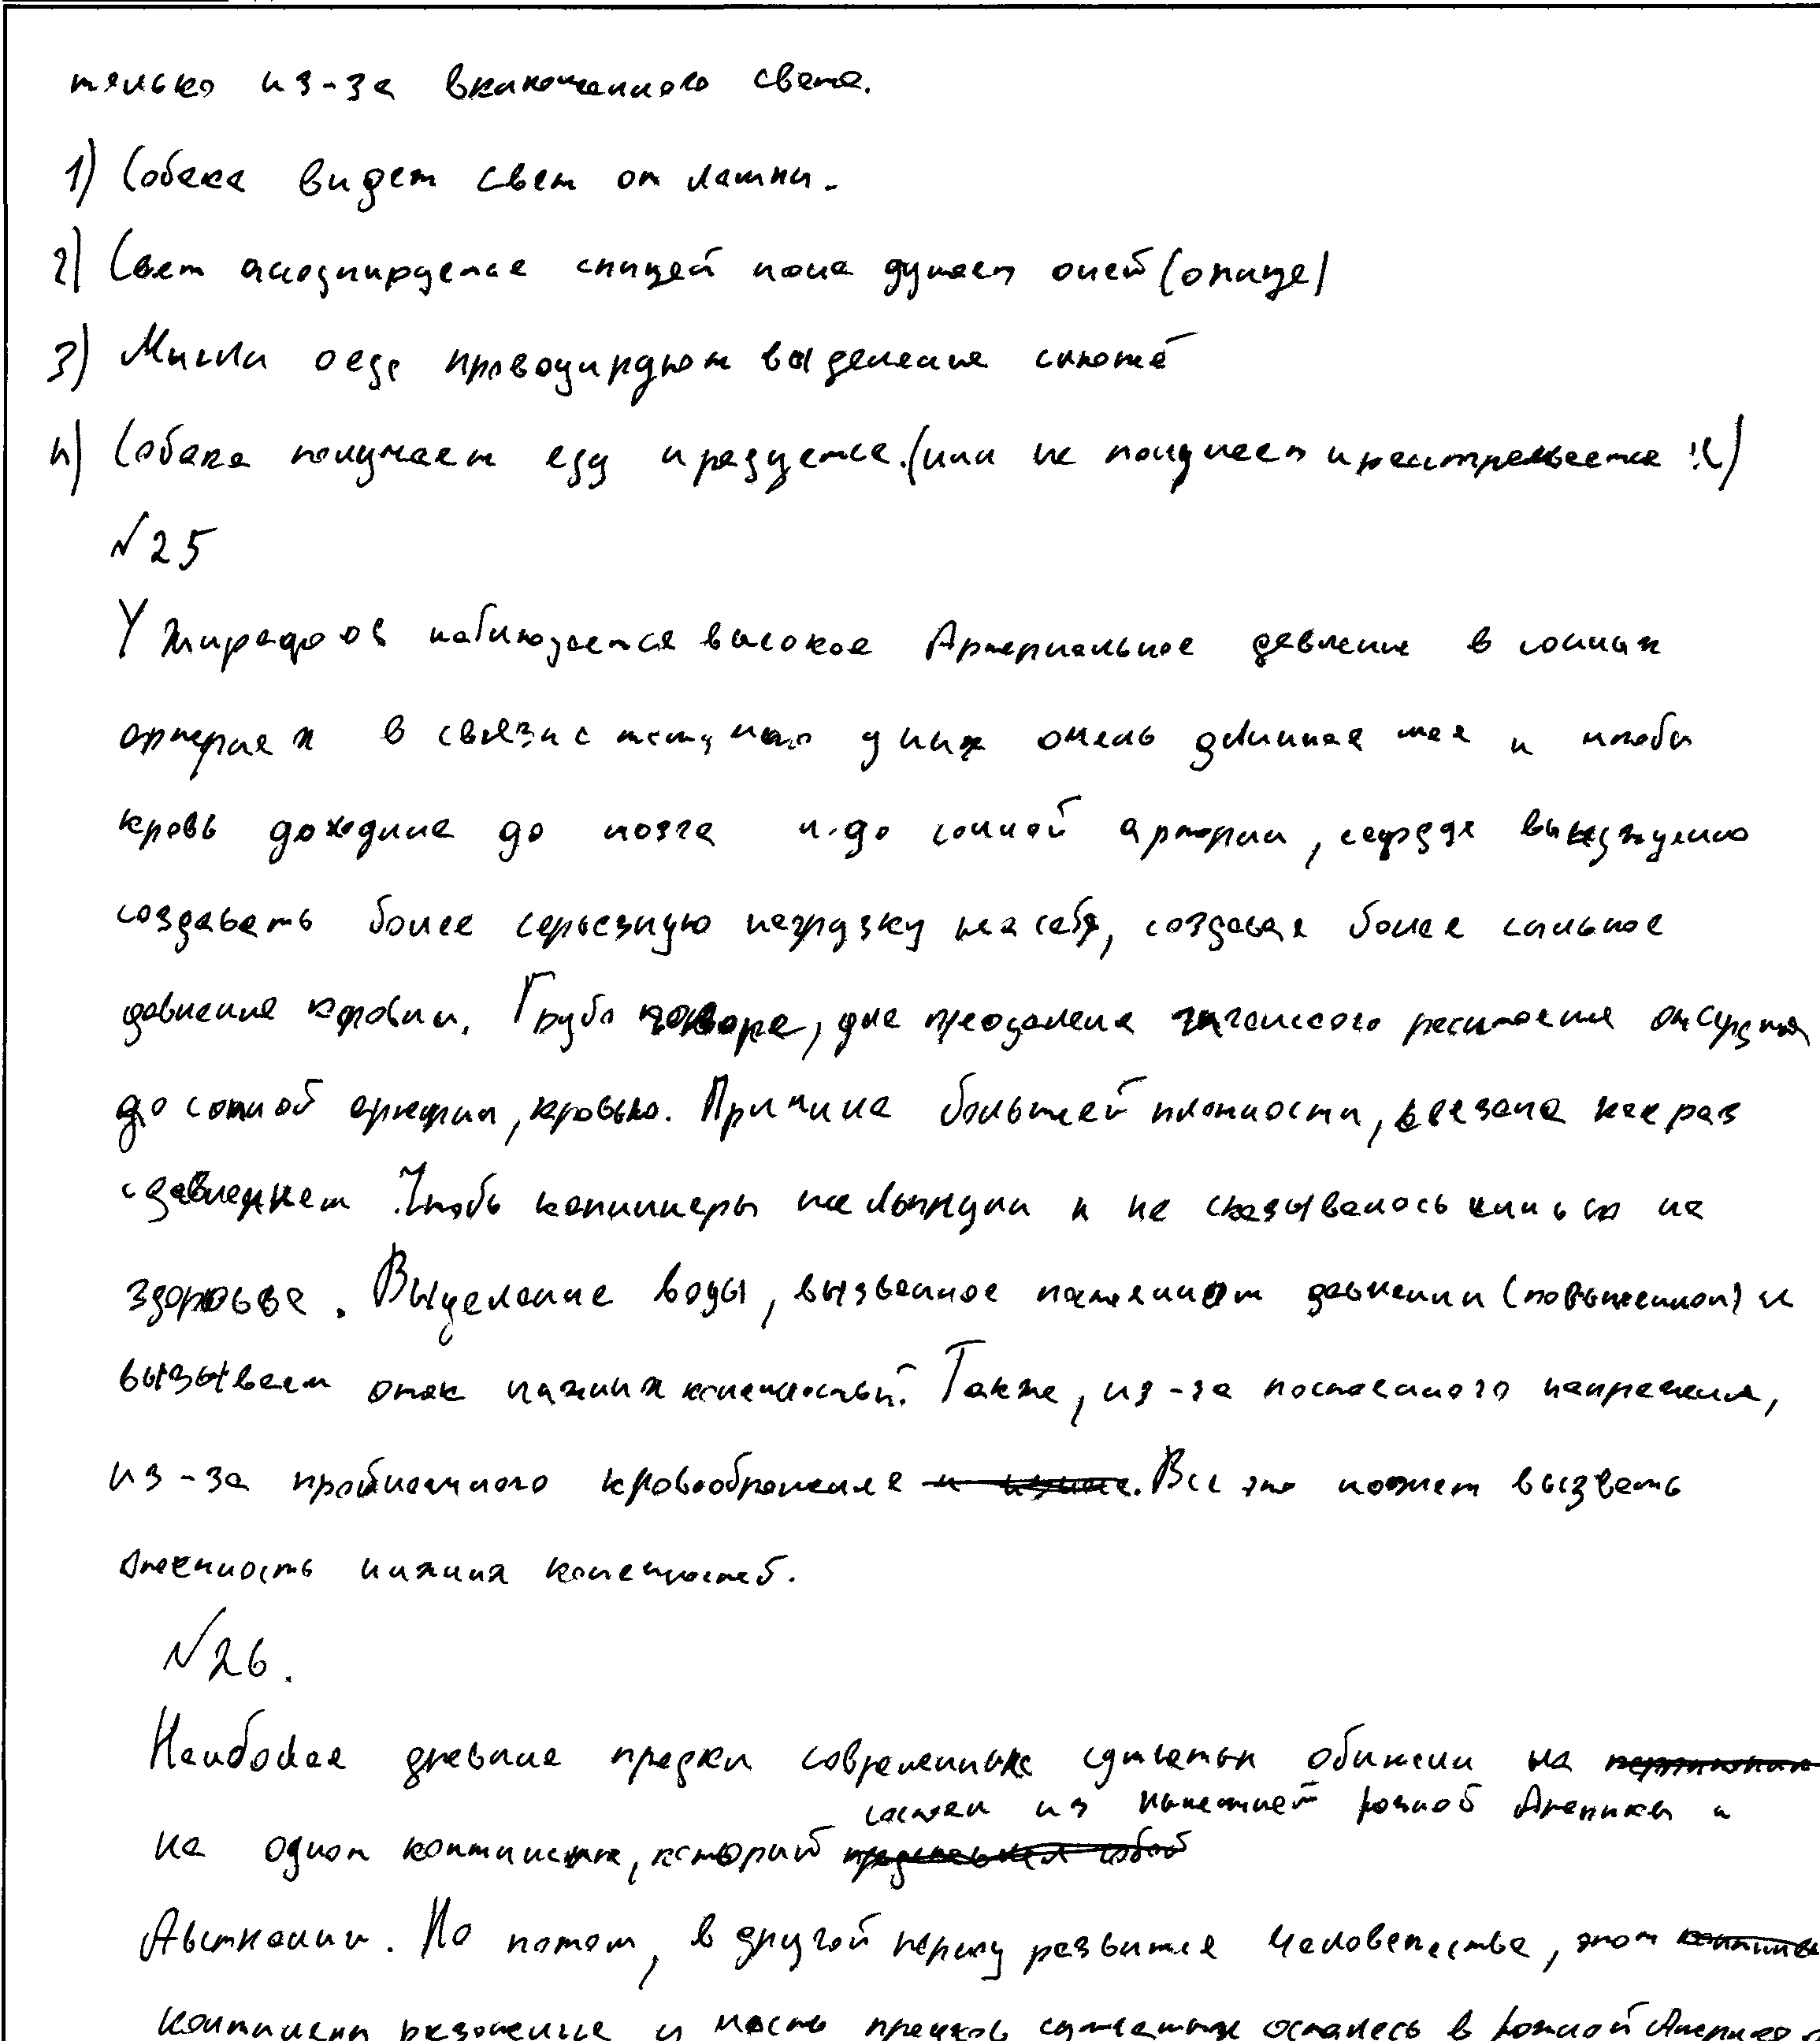 только из-за включенного света.
1) Собака видет свет от лампы.
2) Свет ассоциируется с пищей пока думает о ней (о пище)
3) Мысли о еде провоцируют выделение слюны
4) Собака получает еду и радуется. (или не получает и расстраивается :()
№25
У жирафов наблюдается высокое Артериальное давление в сонных
артериях в связи с тем, что у них очень длинная шея и чтобы
кровь доходила до мозга и до сонной артерии, сердце вынуждено
создавать более серьезную нагрузку на себя, создавая более сильное
давление крови. Грубо говоря, для преодоления гигансого растояния от сердца
до сонной артерии, кровью. Причина большей плотности, связана как раз
с давлением. Чтобы капилляры не лопнули и не сказывалось сильно на
здоровье. Выделение воды, вызванное давлении (повышенном) и
вызывает отек нижних конечностей. Также, из-за постоянного напряжения,
из-за кровообращения. Все это может вызвать
отечность нижних конечностей.
№26.
Наиболее древние предки современных сумчатых обитали на
состоял из нынешней южной Америки и
на одном континенте, который
Австралии. Но потом, в другой период развития человечества, этот
континент разделился и часть предков сумчатых осталась в южной Америке